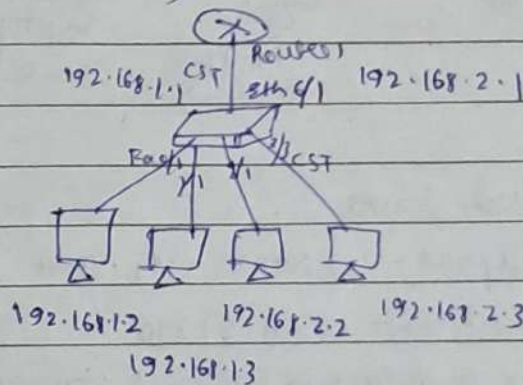 Router1
192.168.1.1 CST Eth 9/1 192.168.2.1
CST
192.168.1.2 192.168.2.2 192.168.2.3
192.168.1.3